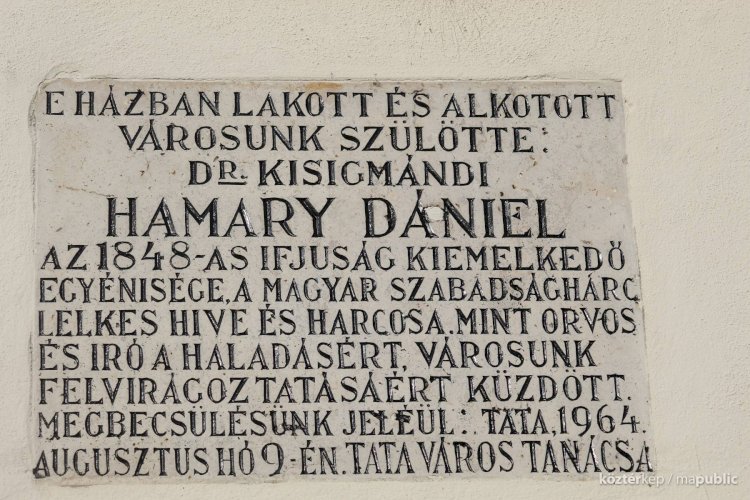 E HÁZBAN LAKOTT ÉS ALKOTOTT
VÁROSUNK SZÜLÖTTE:
DR. KISIGMÁNDI
HAMARY DÁNIEL
AZ 1848-AS IFJUSÁG KIEMELKEDŐ
EGYÉNISÉGE, A MAGYAR SZABADSÁGHARC
LELKES HIVE ÉS HARCOSA. MINT ORVOS
ÉS IRÓ A HALADÁSÉRT, VÁROSUNK
FELVIRÁGOZTATÁSÁÉRT KÜZDÖTT.
MEGBECSÜLÉSÜNK JELÉÜL: TATA, 1964.
AUGUSZTUS HÓ 9-ÉN. TATA VÁROS TANÁCSA
köztérkép / mapublic